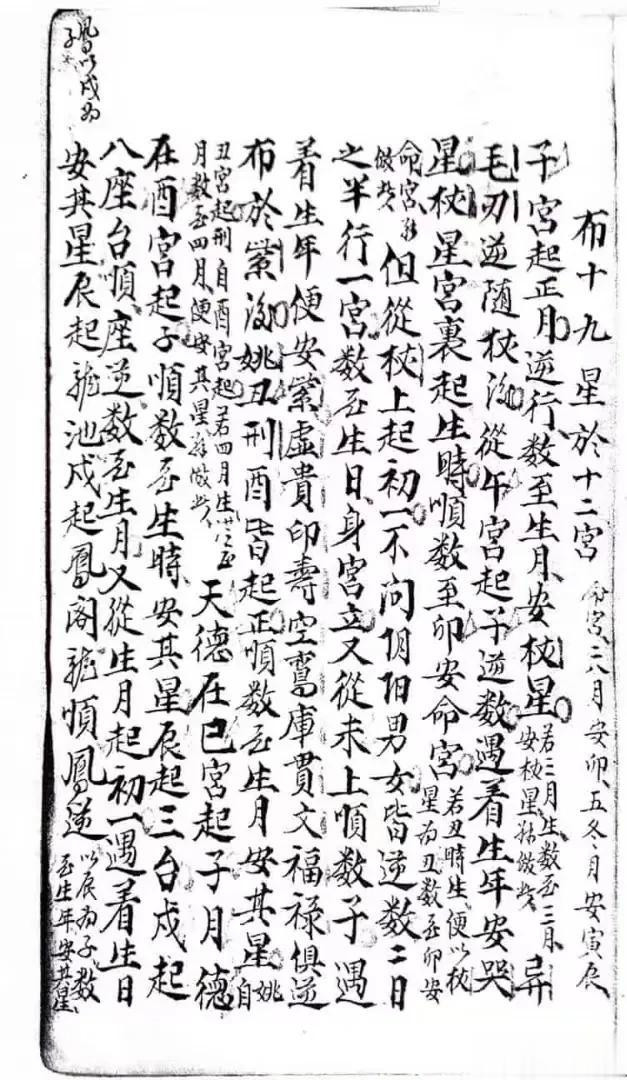 布十九星於十二宮 命宮、二八月安卯、五冬月安寅辰、
子宮起正月逆行数至生月、安杖星若三月生数至三月安杖星餘倣此异
毛刃逆随杖後從午宮起子逆数遇着生年安哭
星杖星宮裏起生時順数至卯安命宮若丑時生、便以杖星为丑数至卯安
命宮餘倣此但從杖上起初一不问阴阳男女皆逆数二日
之半行一宮数至生日、身宮立又從未上順数子遇
着生年便安紫虚貴印壽空鸞庫貫文福禄俱逆
布於紫後姚丑刑酉皆起正順数至生月安其星姚自
丑宮起刑自酉宮起若四月生至月数至四月、便安其星餘倣此、天德在巳宮起子月德
在酉宮起子順数至生時、安其星辰起三台戍起
八座台順、座逆数至生月又從生月起初一遇着生日
安其星辰起龍池戍起鳳閣龍順鳳逆以辰为子数至生年安其星、
鳳以戍为子